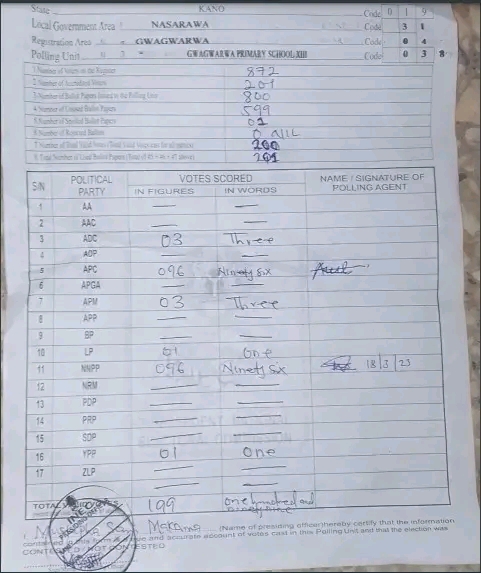 State KANO Code 0 1 9
Local Government Area NASARAWA Code 3 1
Registration Area GWAGWARWA Code 0 4
Polling Unit GWAGWARWA PRIMARY SCHOOL XIII Code 0 3 8
1. Number of Voters on the Register 872
2. Number of Accredited Voters 201
3. Number of Ballot Papers Issued to the Polling Unit 800
4. Number of Unused Ballot Papers 599
5. Number of Spoiled Ballot Papers 01
6. Number of Rejected Ballots 0 NIL
7. Number of Total Valid Votes (Total Valid Votes cast for all parties) 200
8. Total Number of Used Ballot Papers (Total of 5 + 6 + 7 above) 201
S/N POLITICAL PARTY VOTES SCORED NAME / SIGNATURE OF POLLING AGENT
IN FIGURES IN WORDS
1 AA — —
2 AAC — —
3 ADC 03 Three
4 ADP — —
5 APC 096 Ninety six
6 APGA — —
7 APM 03 Three
8 APP — —
9 BP — —
10 LP 01 One
11 NNPP 096 Ninety six 18/3/23
12 NRM — —
13 PDP — —
14 PRP — —
15 SDP — —
16 YPP 01 One
17 ZLP — —
TOTAL 199 One hundred and ninety nine
I Makama (Name of presiding officer) hereby certify that the information
contained in this form is a true and accurate account of votes cast in this Polling Unit and that the election was
CONTESTED / NOT CONTESTED